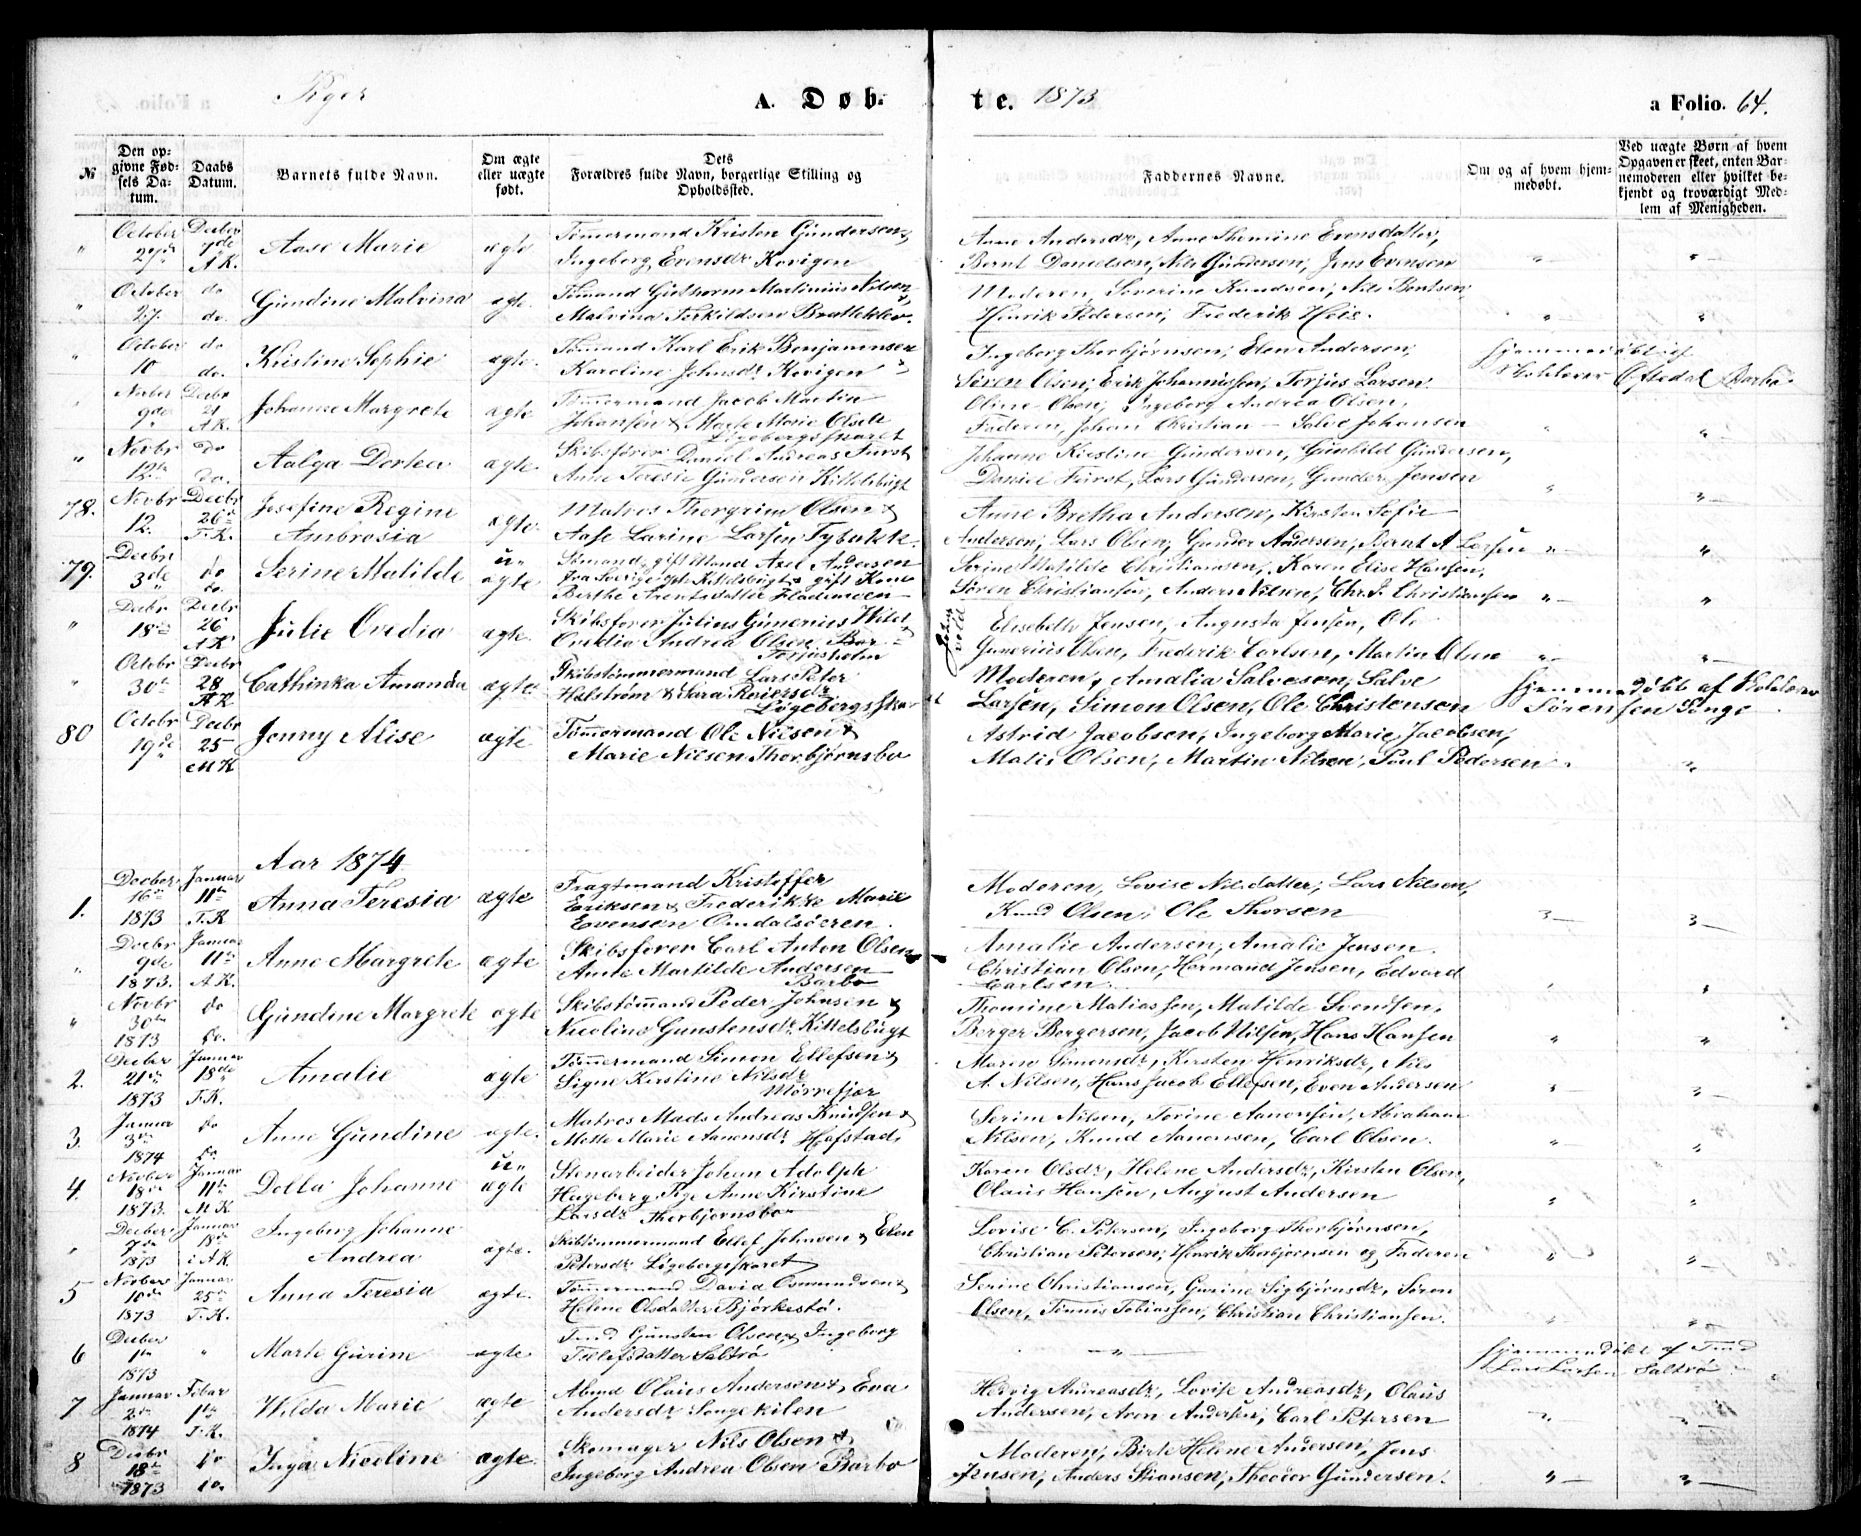 Piger
A. Døb-
te. 1873
a Folio. 64.
№
Den opgivne Fødsels Datum.
Daabs Datum.
Barnets fulde Navn.
Om ægte eller uægte født.
Dets Forældres fulde Navn, borgerlige Stilling og Opholdssted.
Faddernes Navne.
Om og af hvem hjemmedøbt.
Ved uægte Børn af hvem Opgaven er skeet, enten Barnemoderen eller hvilket bekjendt og troværdigt Medlem af Menigheden.
" October 27de Decber 7de A.K. Aase Marie ægte Tømmermand Kristen Gundersen &
Ingeborg Evensdr Kovigen
Anne Andersdr, Anne Thomine Evensdatter,
Bernt Danielsen, Nils Gundersen, Jens Evensen
" October 27. do do. Gundine Malvina ægte. Tømand Guthorm Martinius Nilsen &
Malvina Terkildsen Bratteklev.
Moderen, Severine Knudsen, Nils Bentsen,
Henrik Pedersen, Frederik Heie.
" October 10 do do. Kristine Sophie ægte. Tømand Karl Erik Benjaminsen
Karoline Johnsdr Kovigen
Ingeborg Thorbjørnsen, Elen Andersen,
Søren Olsen, Erik Johannissen, Terjus Larsen
Hjemmedøbt af
Kokleven Oftedal Barbo
" Novber 9de Decbr 21 A.K. Johanne Margrete ægte Tømmermand Jacob Martin
Johansen & Marte Marie Olsen
Løgebergsskaret
Oline Olsen, Ingeborg Andrea Olsen,
Faderen, Johan Christian – Salve Johansen
" Novbr 12te do do. Aalga Dorthea ægte Skibsfører Daniel Andreas Fürst
Anne Teresie Gundersen Kittelsbugt
Johanne Kirstine Gundersen, Gunhild Gundersen,
Daniel Fürst, Lars Gundersen, Gunder Jensen
78. Novbr 12. Decbr 26de T.K. Josefine Regine
Ambrosia ægte. Matros Thorgrim Olsen &
Aase Larine Larsen Tybakk.
Anne Bretha Andersen, Kirsten Sofie
Andersen, Lars Olsen, Gunder Andersen, Bernt A Larsen
79. Decbr 3de do do. Serine Matilde u-ægte Tømand, gift Mand Axel Andersen
fra Sverige opk Kittelsbugt & gift Kone
Berthe Arentsdatter Flademoen
Serine Matilde Christiansen, Karen Elise Hansen,
Søren Christiansen, Anders Nilsen, Chr. J. Christiansen
" Decbr 18de Decbr 26 A.K Julie Ovedia ægte. Skibsfører Julius Gunerius Hild &
Ovedia Andrea Olsen Bar-
Torjusholm
Elisebeth Jensen, Augusta Jensen, Ole
Gunerius Olsen, Frederik Carlsen, Martin Olsen
" Octobr 30te Decbr 28 A.K Cathinka Amanda ægte. Skibstømmermand Lars Peter
Holstrøm & Sara Reiersdr
Løgebergsskaret
Moderen, Amalia Salvesen, Salve
Larsen, Simon Olsen, Ole Christensen
Hjemmedøbt af Kokleven
Sørensen Songe
80 Octobr 19de Decbr 25 M.K Jenny Alise ægte Tømmermand Ole Nilsen &
Marie Nilsen Thorbjørnsbo
Astrid Jacobsen, Ingeborg Marie Jacobsen,
Malie Olsen, Martin Nilsen, Poul Pedersen
Aar 1874
1. Decber 16de 1873 Januar 11te T.K. Anna Teresia ægte Fragtmand Kristoffer
Eriksen & Frederikke Marie
Evensen Omdalsøeren.
Moderen, Lovise Nilsdatter, Lars Nilsen,
Knud Olsen, Ole Thorsen
" Decbr 9de 1873. Januar 11te A.K. Anne Margrete ægte Skibsfører Carl Anton Olsen
Anne Martilde Andersen
Barbo
Amalie Andersen, Amalie Jensen.
Christian Olsen, Hermand Jensen, Edvard
Carlsen
" Novbr 30te 1873 do do. Gundine Margrete ægte Skibstømand Peder Johnsen &
Nicoline Gunstensdr Kittelsbugt
Thomine Matiassen, Matilde Svendsen,
Berger Borgersen, Jacob Nilsen, Hans Hansen
2. Decber 21de 1873 Januar 18de T.K. Amalie ægte Tømmermand Simon Ellefsen &
Signe Kirstine Nilsdr
Mørrefjær
Maren Simonsdr, Kirsten Henriksdr, Nils
A. Nilsen, Hans Jacob Ellefsen, Even Andersen
3. Januar 3de 1874 do do. Anne Gundine ægte. Matros Mads Andreas Knudsen &
Mette Marie Aanonsdr Hofstad,
Serine Nilsen, Torine Aanonsen, Abraham
Nilsen, Knud Aanonsen, Carl Olsen.
4. Novber 18de 1873. Januar 11te M.K Della Johanne u-ægte Stenarbeider Johan Adolph
Hageberg, Pige Anne Kirstine
Larsdr Thorbjørnsbo
Karen Olsdr, Helene Andersdr, Kirsten Olsen,
Olaus Hansen, August Andersen
" Decber 7de 1873 Januar 18de i A.K. Ingeborg Johanne
Andrea ægte. Skibstømmermand Ellef Johnsen & Elen
Petersdr Løgebergsskaret
Lovise C. Petersen, Ingeborg Thorbjørnsen,
Christian Petersen, Henrik Thorbjørnsen og Faderen
5 Novber 10de 1873 Januar 25de T.K. Anna Teresia ægte. Tømmermand David Osmundsen &
Helene Olsdatter Bjørkestø.
Serine Christiansen, Gurine Sigbjørnsdr, Søren
Olsen, Tønnis Tobiassen, Christian Christiansen.
6 Decber 1te 1873 " Marte Gurine ægte Tmd Gunsten Olsen & Ingeborg
Tellefsdatter Saltrø
Hjemmedøbt af Tmd
Lars Larsen Saltrø
7 Januar 2de 1874 Febar 1te T.K. Hilda Marie ægte Abmd Olaus Andersen & Eva
Andersdr Songekilen
Hedvig Andreasdr, Lovise Andreasdr, Olaus
Andersen, Aren Andersen, Carl Petersen
8 Decbr 18de 1873 do do Inga Nicoline ægte. Skomager Nils Olsen &
Ingeborg Andrea Olsen Barbo
Moderen, Birte Helene Andersen, Jens
Jensen, Anders Stiansen, Theodor Gundersen.